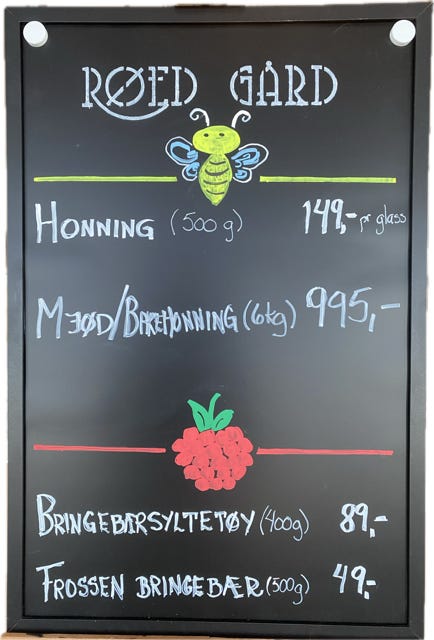 RØED GÅRD
HONNING (500g) 149,- pr glass
MJØD/BAKEHONNING (6kg) 995,-
BRINGEBÆRSYLTETØY (400g) 89,-
FROSSEN BRINGEBÆR (500g) 49,-